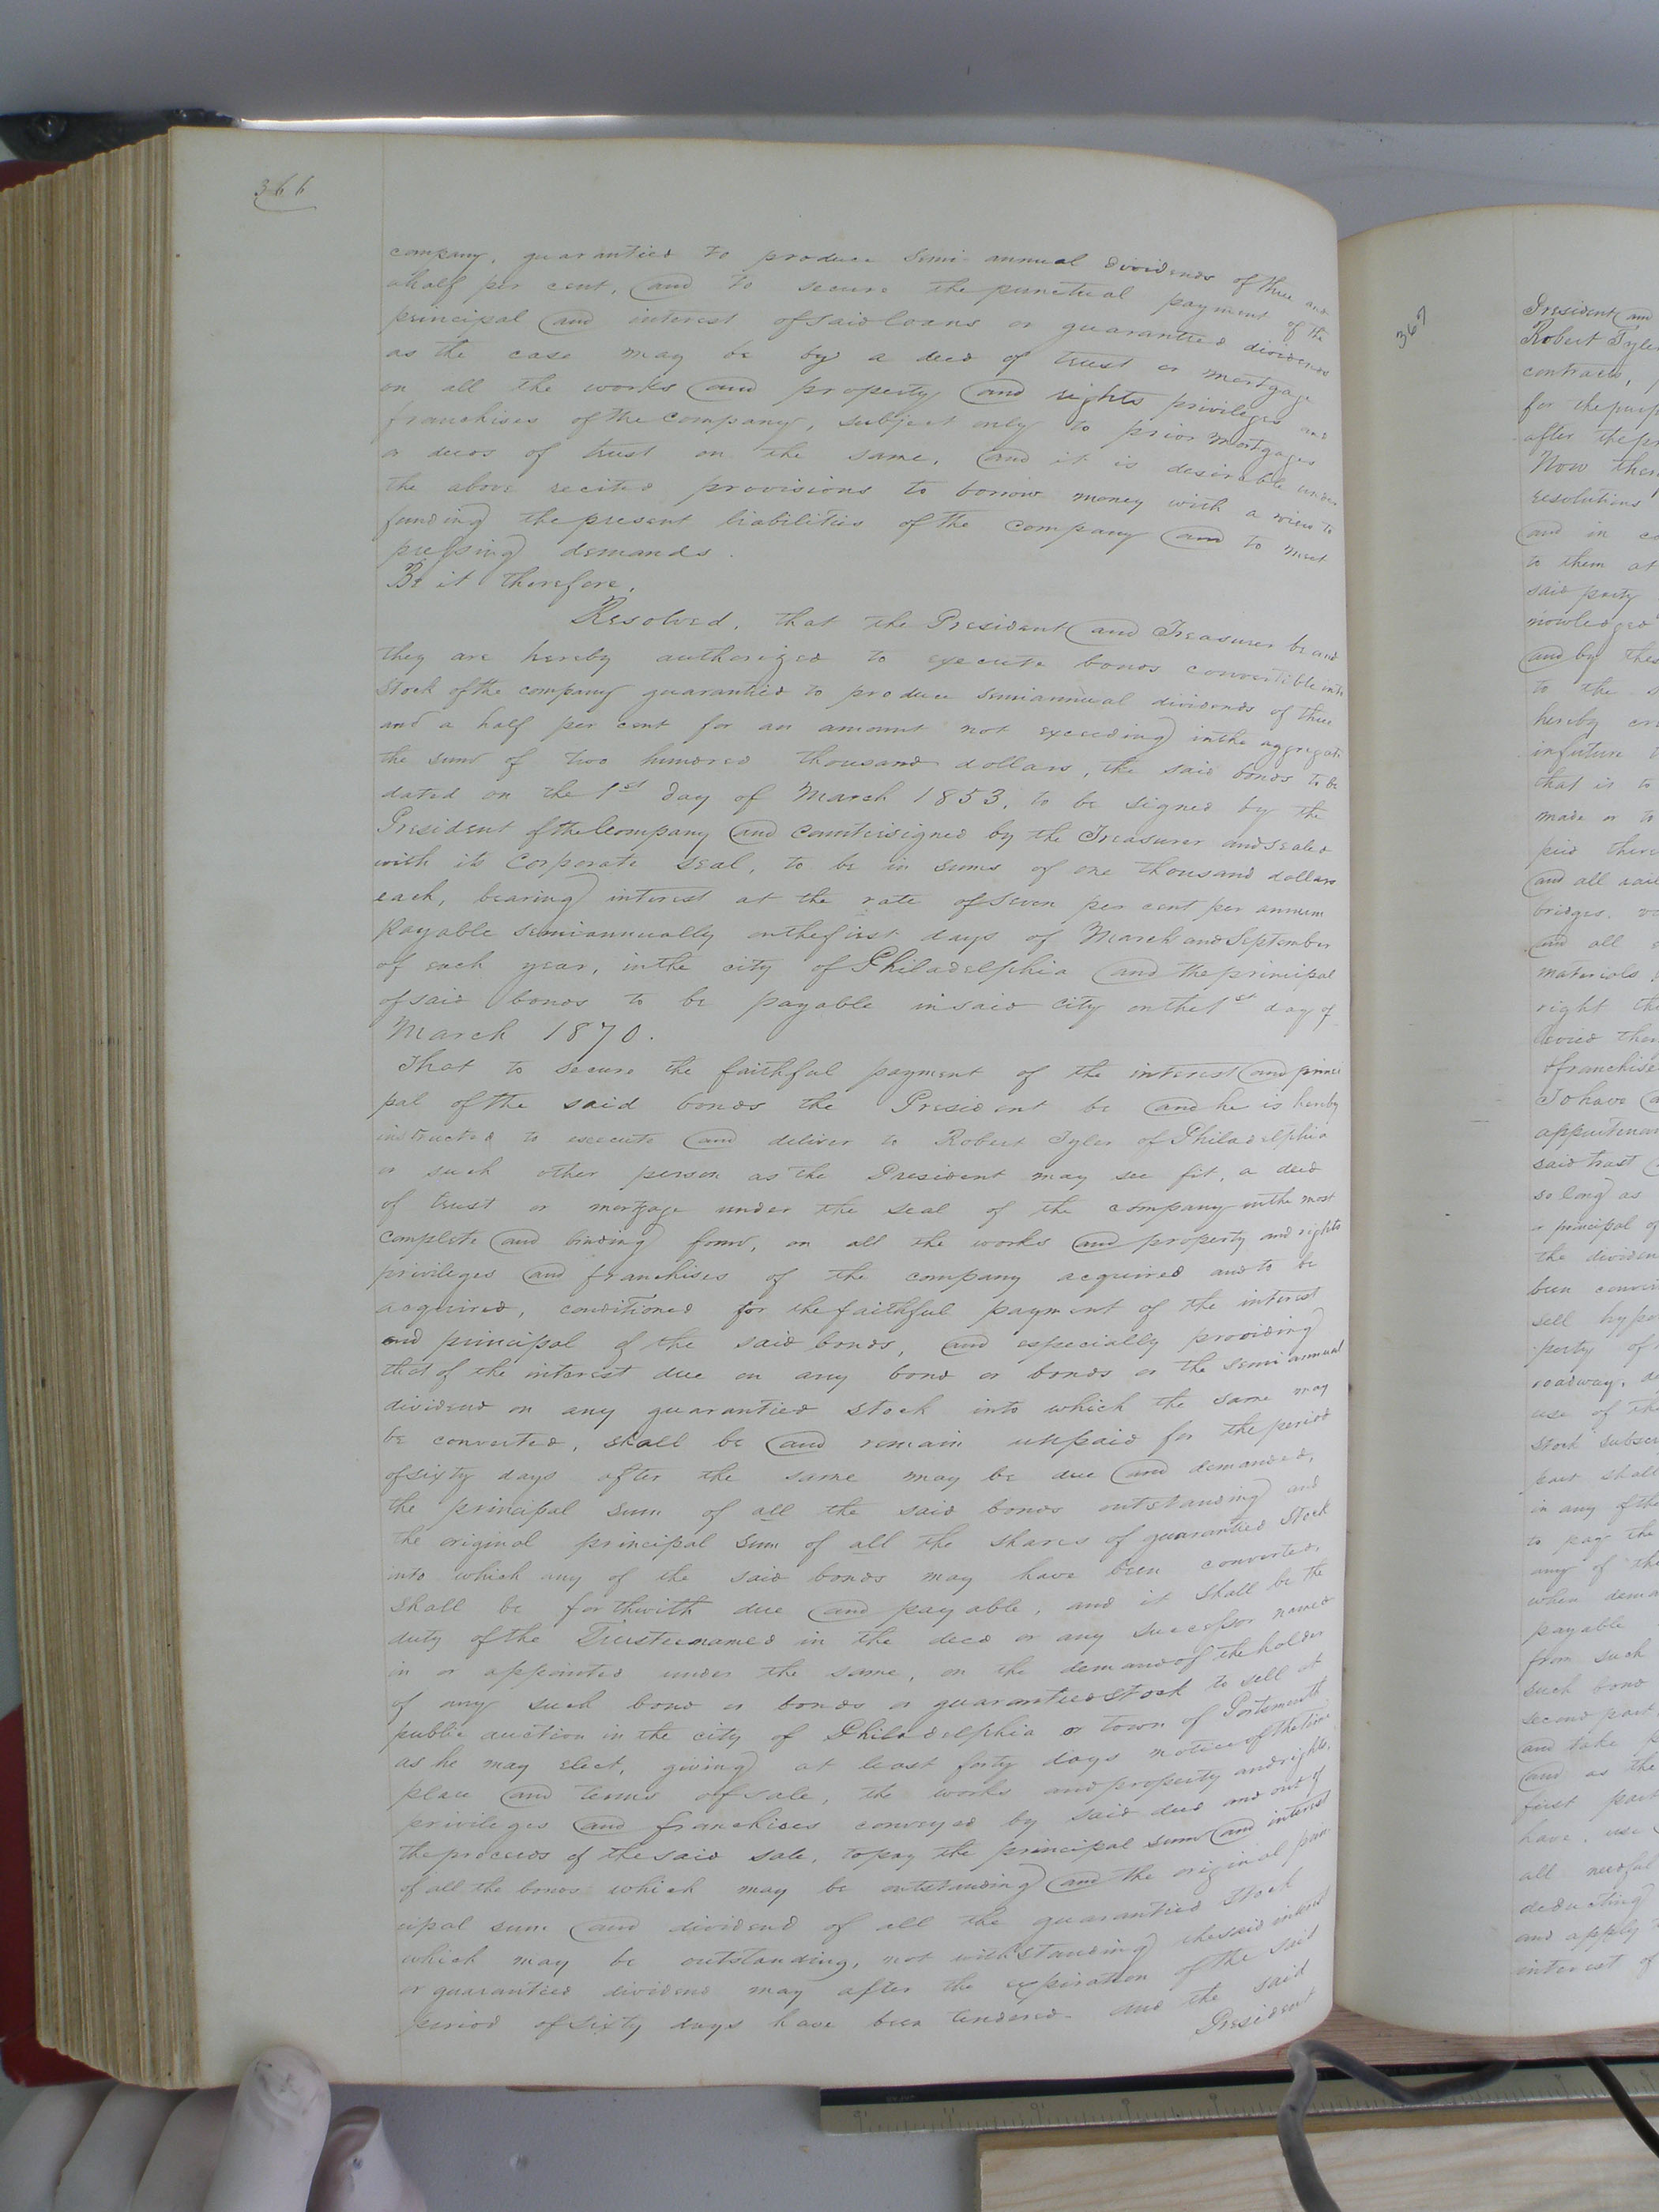 366
company, guarantied to produce semi annual dividends of three and
ahalf per cent, and to secure the punctual payment of the
principal and interest of said loans or guarantied dividends
as the case may be by a deed of trust or mortgage
on all the works and property and rights privileges and
franchises of the company, subject only to prior mortgages
or deeds of trust on the same, and it is desirable under
the above recited provisions to borrow money with a view to
funding the present liabilities of the company and to meet
pressing demands.
Be it therefore,
Resolved, that the President and Treasurer be and
they are hereby authorized to execute bonds convertible into
stock of the company guarantied to produce semiannual dividends of three
and a half per cent for an amount not exceeding in the aggregate
the sum of two hundred thousand dollars, the said bonds to be
dated on the 1st day of March 1853, to be signed by the
President of the Company and countersigned by the Treasurer and sealed
with its corporate seal, to be in sums of one thousand dollars
each, bearing interest at the rate of seven per cent per annum
payable semiannually on the first days of March and September
of each year, in the city of Philadelphia and the principal
of said bonds to be payable in said city on the 1st day of
March 1870.
That to secure the faithful payment of the interest and princi
pal of the said bonds the President be and he is hereby
instructed to execute and deliver to Robert Tyler of Philadelphia
or such other person as the President may see fit, a deed
of trust or mortgage under the seal of the company in the most
complete and binding form, on all the works and property and rights
privileges and franchises of the company acquired and to be
acquired, conditioned for the faithful payment of the interest
and principal of the said bonds, and especially providing
that if the interest due on any bond or bonds or the semi annual
dividend on any guarantied stock into which the same may
be converted, shall be and remain unpaid for the period
of sixty days after the same may be due and demanded,
the principal sum of all the said bonds outstanding and
the original principal sum of all the shares of guarantied stock
into which any of the said bonds may have been converted,
shall be forthwith due and payable, and it shall be the
duty of the Trustee named in the deed or any successor named
in or appointed under the same, on the demand of the holder
of any such bond or bonds or guarantied stock to sell at
public auction in the city of Philadelphia or town of Portsmouth
as he may elect, giving at least forty days notice of the time
place and terms of sale, the works and property and rights,
privileges and franchises conveyed by said deed and out of
the proceeds of the said sale, to pay the principal sum and interest
of all the bonds which may be outstanding and the original prin
cipal sum and dividend of all the guarantied stock
which may be outstanding, not withstanding the said interest
or guarantied dividend may after the expiration of the said
period of sixty days have been tendered. and the said
President
367
President and
Robert Tyler
contract,
for the purp
after the pr
Now then
resolutions
and in co
to them at
said party
nowledged
and by thes
to the s
hereby cr
in future
that is to
made or to
paid there
and all rail
bridges,
and all
materials
right th
levied then
& franchise
To have
appurtenan
said trust
so long as
or principal of
the dividen
been conver
sell hypo
perty of
roadway, de
use of the
stock subscr
part shall
in any of the
to pay the
any of the
when dema
payable
from such
such bond
second part
and take p
and as the
first part
have, use
all needful
deducting
and apply
interest of